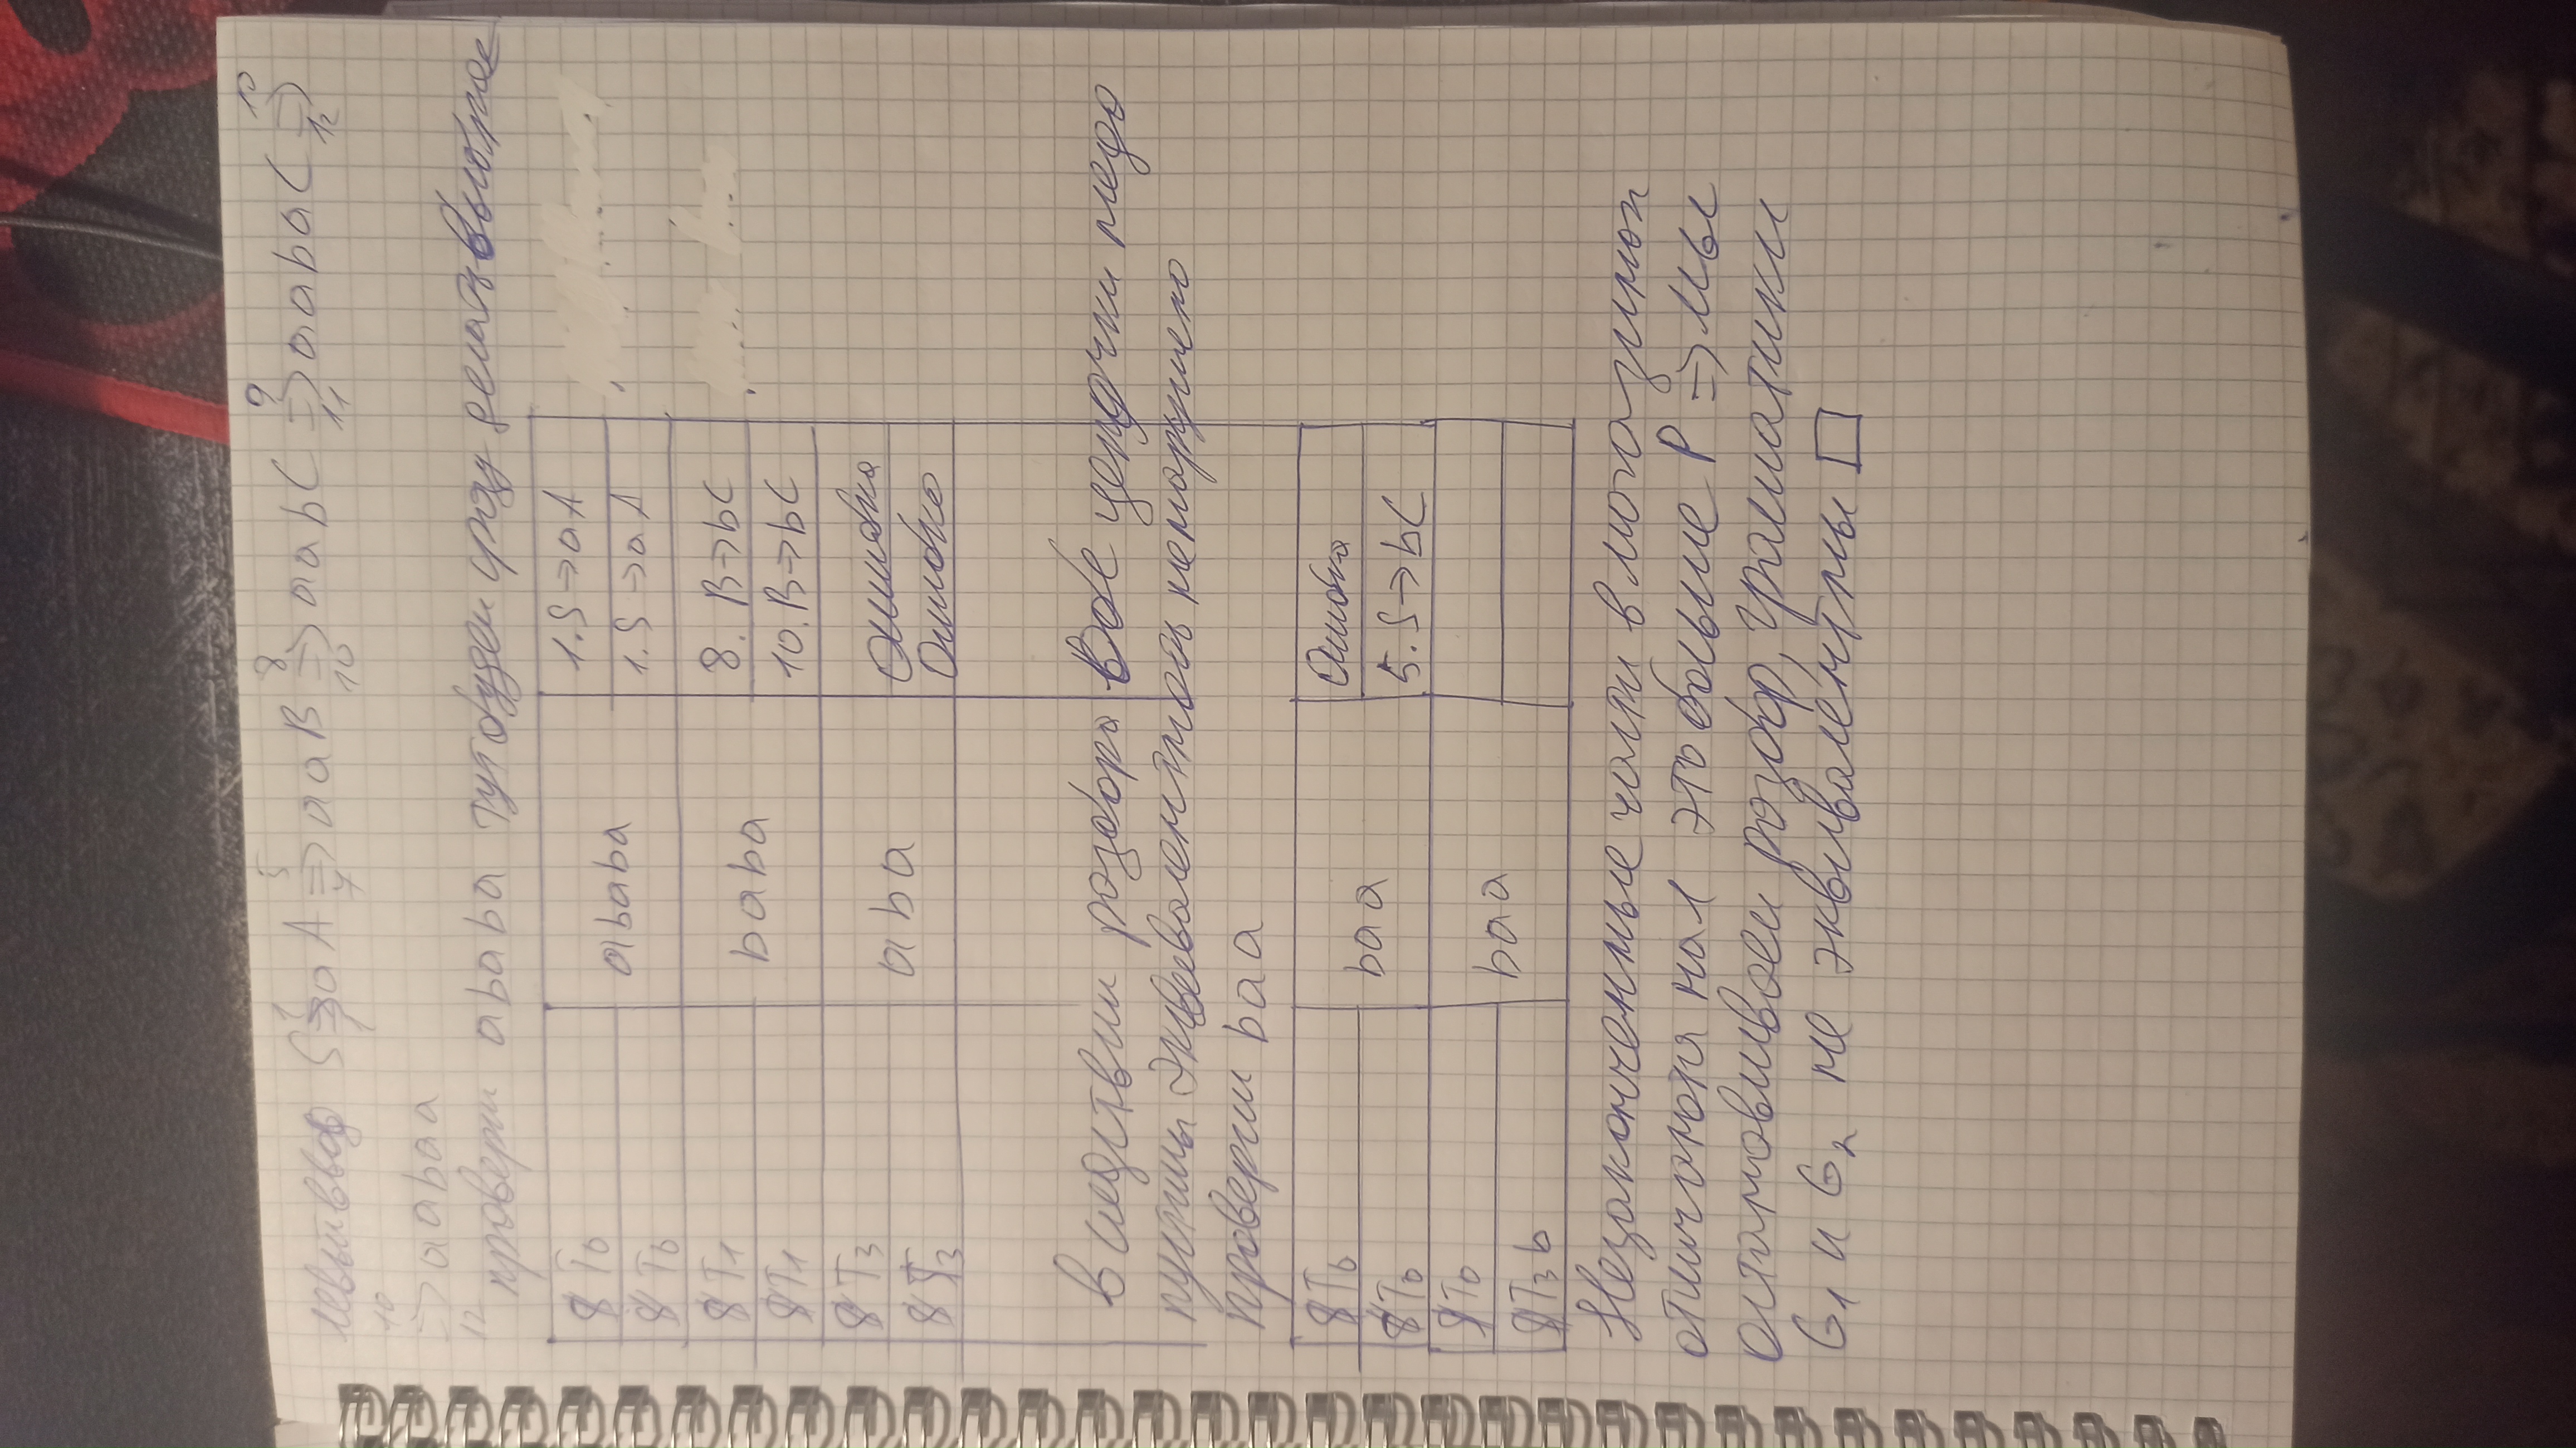 левый ввод S ⇒ aA ⇒ aaB ⇒ aabC ⇒ aabaC ⇒
1 5 8 9 10
1 7 10 11 12
10
⇒ aabaa
12
проверим ababa тут будем сразу делать выброс
$T₀ ababa 1. S→aA
$T₀ 1. S→aA
$T₁ baba 8. B→bC
$T₁ 10. B→bC
$T₃ aba Ошибка
$T₃ Ошибка
В следствии разбора обе цепочки недо
пустимы эквивалентность не нарушена
проверим baa
$T₀ baa Ошибка
$T₀ 5. S→bC
$T₀ baa
$T₃b
Незаконченные части в магазинах
отличаются на 1 это больше P ⇒ мы
останавливаем разбор, граматики
G₁ и G₂ не эквивалентны □